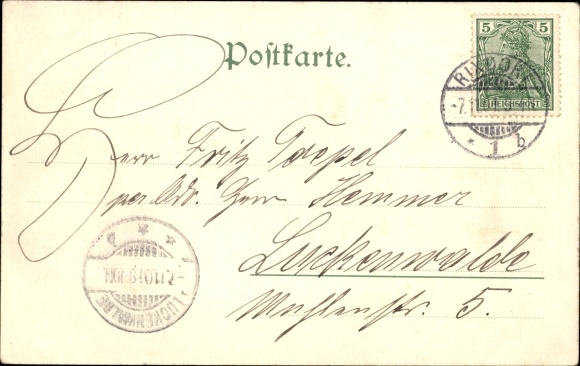 Postkarte.
5 5
REICHSPOST
RIXDORF
1 b
Herr Fritz Toepel
per Adr. Herrn Hemmer
Luckenwalde
str. 5.
LUCKENWALDE